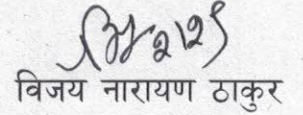 विजय नारायण ठाकुर